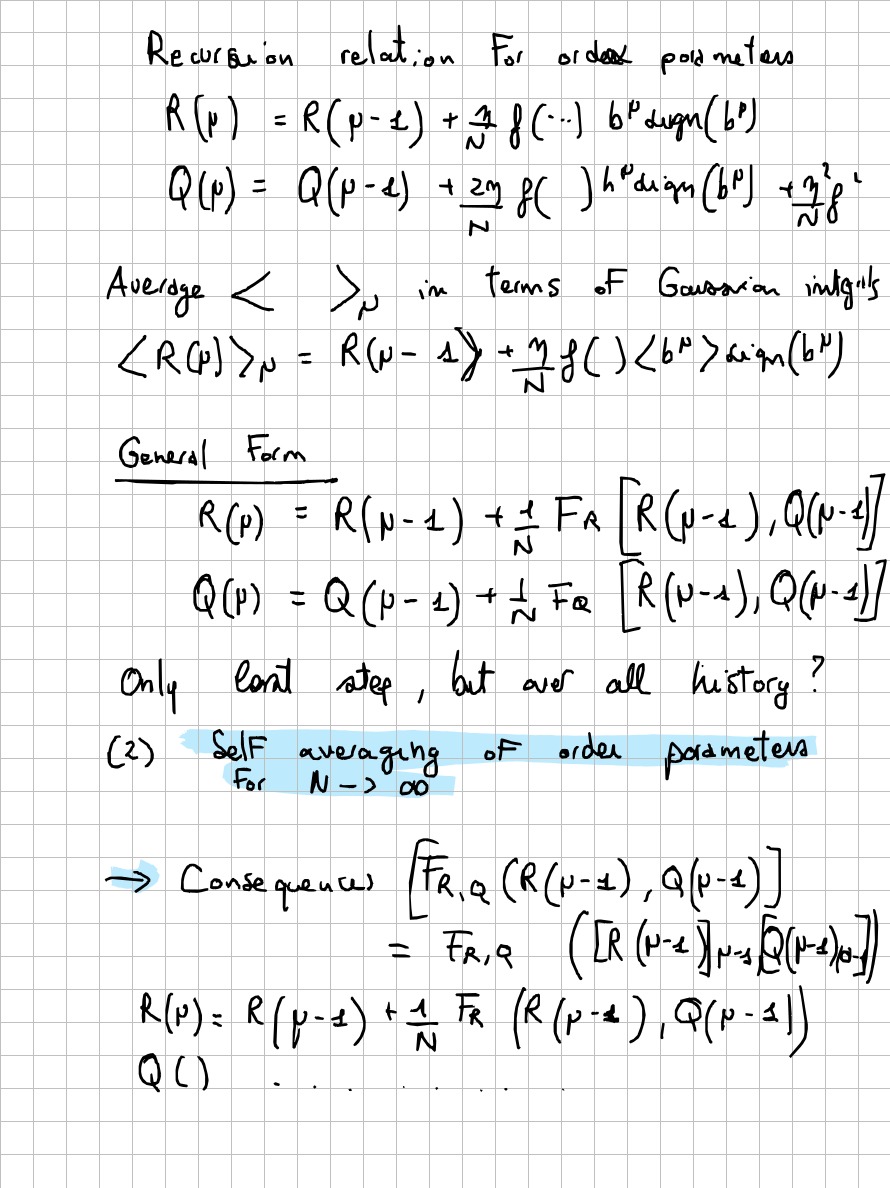 Recursion relation For order parameters
R(μ) = R(μ-1) + η/N f(...) b^μ sign(b^μ)
Q(μ) = Q(μ-1) + 2η/N f( ) h^μ sign(b^μ) + η²/N f²
Average < >_μ in terms of Gaussian intgrls
<R(μ)>_μ = R(μ-1) + η/N f( ) <b^μ> sign(b^μ)
General Form
R(μ) = R(μ-1) + 1/N F_R [R(μ-1), Q(μ-1)]
Q(μ) = Q(μ-1) + 1/N F_Q [R(μ-1), Q(μ-1)]
Only last step, but over all history?
(2) Self averaging of order parameters
For N -> ∞
⇒ Consequences [F_R,Q (R(μ-1), Q(μ-1)]
= F_R,Q ([R(μ-1)]_μ-1, [Q(μ-1)_μ-1])
R(μ) = R(μ-1) + 1/N F_R (R(μ-1), Q(μ-1))
Q( ) . . . . . . . . .